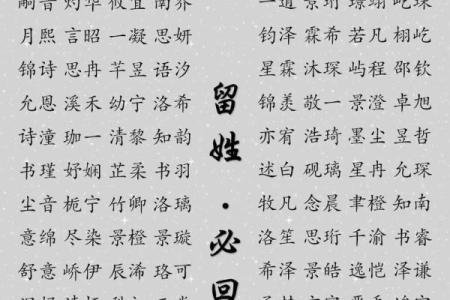 月熙 言昭 一凝 思妍
锦诗 思冉 芊昱 语汐
允恩 溪禾 幼宁 洛希
诗潼 珈一 清黎 知韵
书瑾 妤娴 芷柔 书羽
尘音 栀宁 竹卿 洛璃
意绵 尽染 景橙 景璇
舒意 峤伊 辰浠 珞可
留姓·必回
钧泽 霖希 若凡 栩屹
星霖 沐琛 屿程 邵钦
锦羡 敬一 景澄 卓旭
亦宥 浩琦 墨尘 昱哲
述白 砚璃 星冉 允琛
牧凡 念晨 聿橙 知南
洛笙 思珩 千渝 书睿
希泽 景皓 逸恺 泽谦